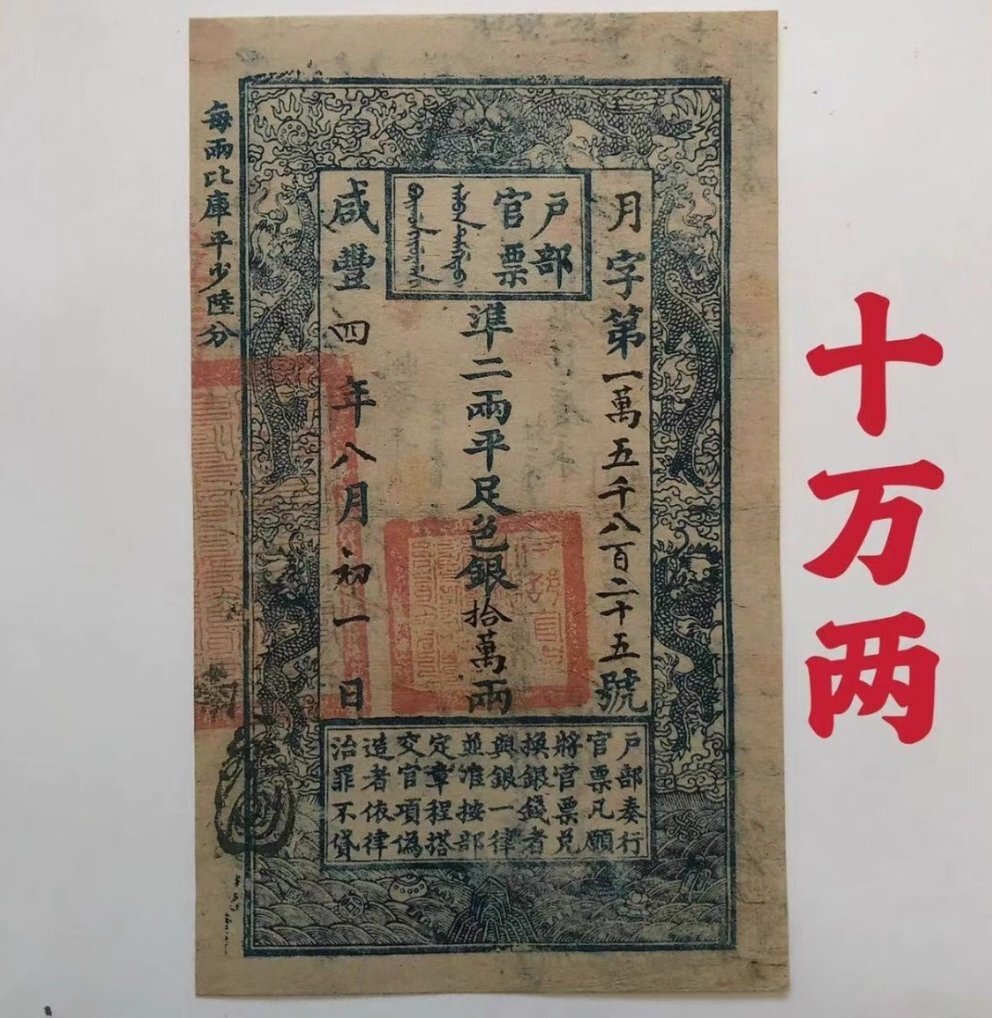 十万两
月字第一萬五千八百二十五號
戶部
官票
準二兩平足色銀拾萬兩
咸豐四年八月初一日
每兩比庫平少陸分
戶部奏行
官票凡願
將官票兌
換銀錢者
與銀一律
並准按部
定章程搭
交官項偽
造者依律
治罪不貸